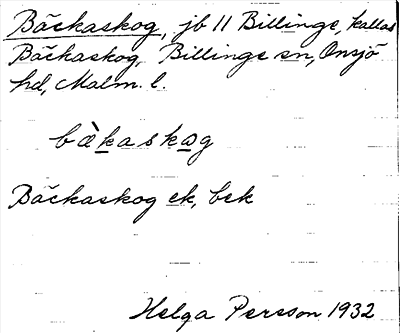 Bäckaskog, jb 11 Billinge, kallas
Bäckaskog, Billinge sn, Onsjö
hd, Malm. l.
bàkaskog
Bäckaskog ek, bek
Helga Persson 1932